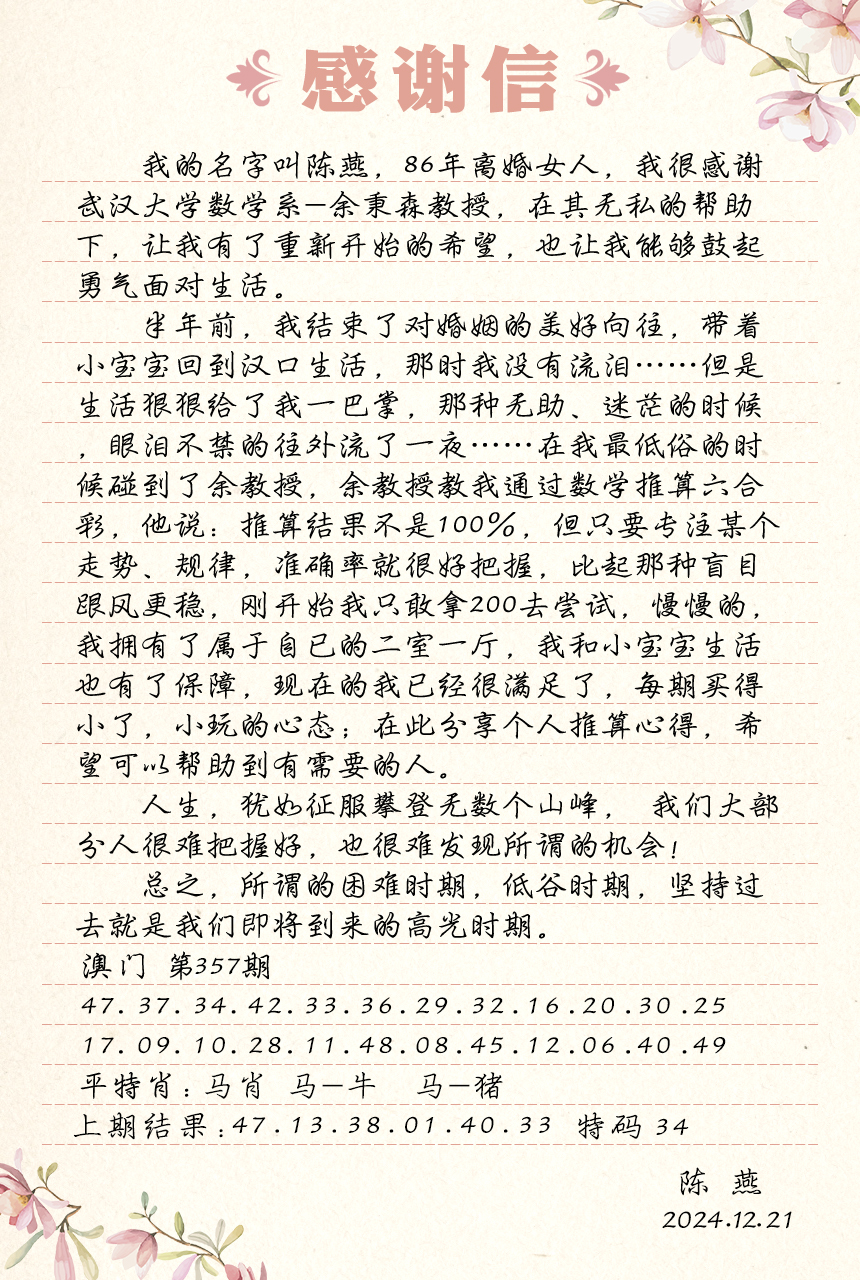 感谢信
我的名字叫陈燕，86年离婚女人，我很感谢
武汉大学数学系-余秉森教授，在其无私的帮助
下，让我有了重新开始的希望，也让我能够鼓起
勇气面对生活。
半年前，我结束了对婚姻的美好向往，带着
小宝宝回到汉口生活，那时我没有流泪……但是
生活狠狠给了我一巴掌，那种无助、迷茫的时候
，眼泪不禁的往外流了一夜……在我最低俗的时
候碰到了余教授，余教授教我通过数学推算六合
彩，他说：推算结果不是100%，但只要专注某个
走势、规律，准确率就很好把握，比起那种盲目
跟风更稳，刚开始我只敢拿200去尝试，慢慢的，
我拥有了属于自已的二室一厅，我和小宝宝生活
也有了保障，现在的我已经很满足了，每期买得
小了，小玩的心态；在此分享个人推算心得，希
望可以帮助到有需要的人。
人生，犹如征服攀登无数个山峰， 我们大部
分人很难把握好，也很难发现所谓的机会！
总之，所谓的困难时期，低谷时期，坚持过
去就是我们即将到来的高光时期。
澳门 第357期
47.37.34.42.33.36.29.32.16.20.30.25
17.09.10.28.11.48.08.45.12.06.40.49
平特肖：马肖 马-牛 马-猪
上期结果：47.13.38.01.40.33 特码 34
陈 燕
2024.12.21